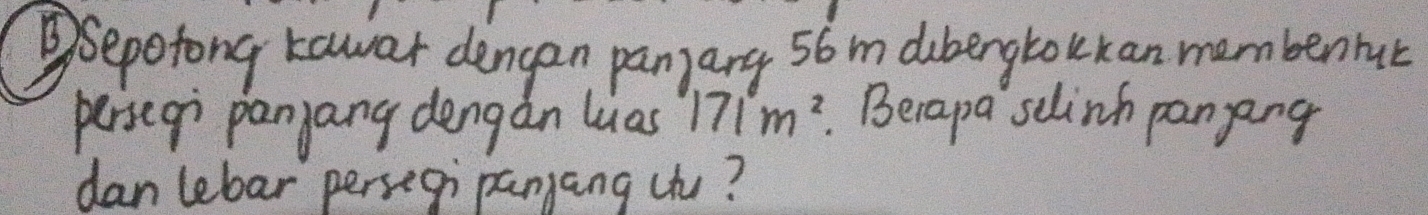 B) Sepotong kawat dengan panjang 56 m dibengkokkan membentuk
persegi panjang dengan luas 171 m². Berapa selinh panjang
dan lebar persegi panjang itu?